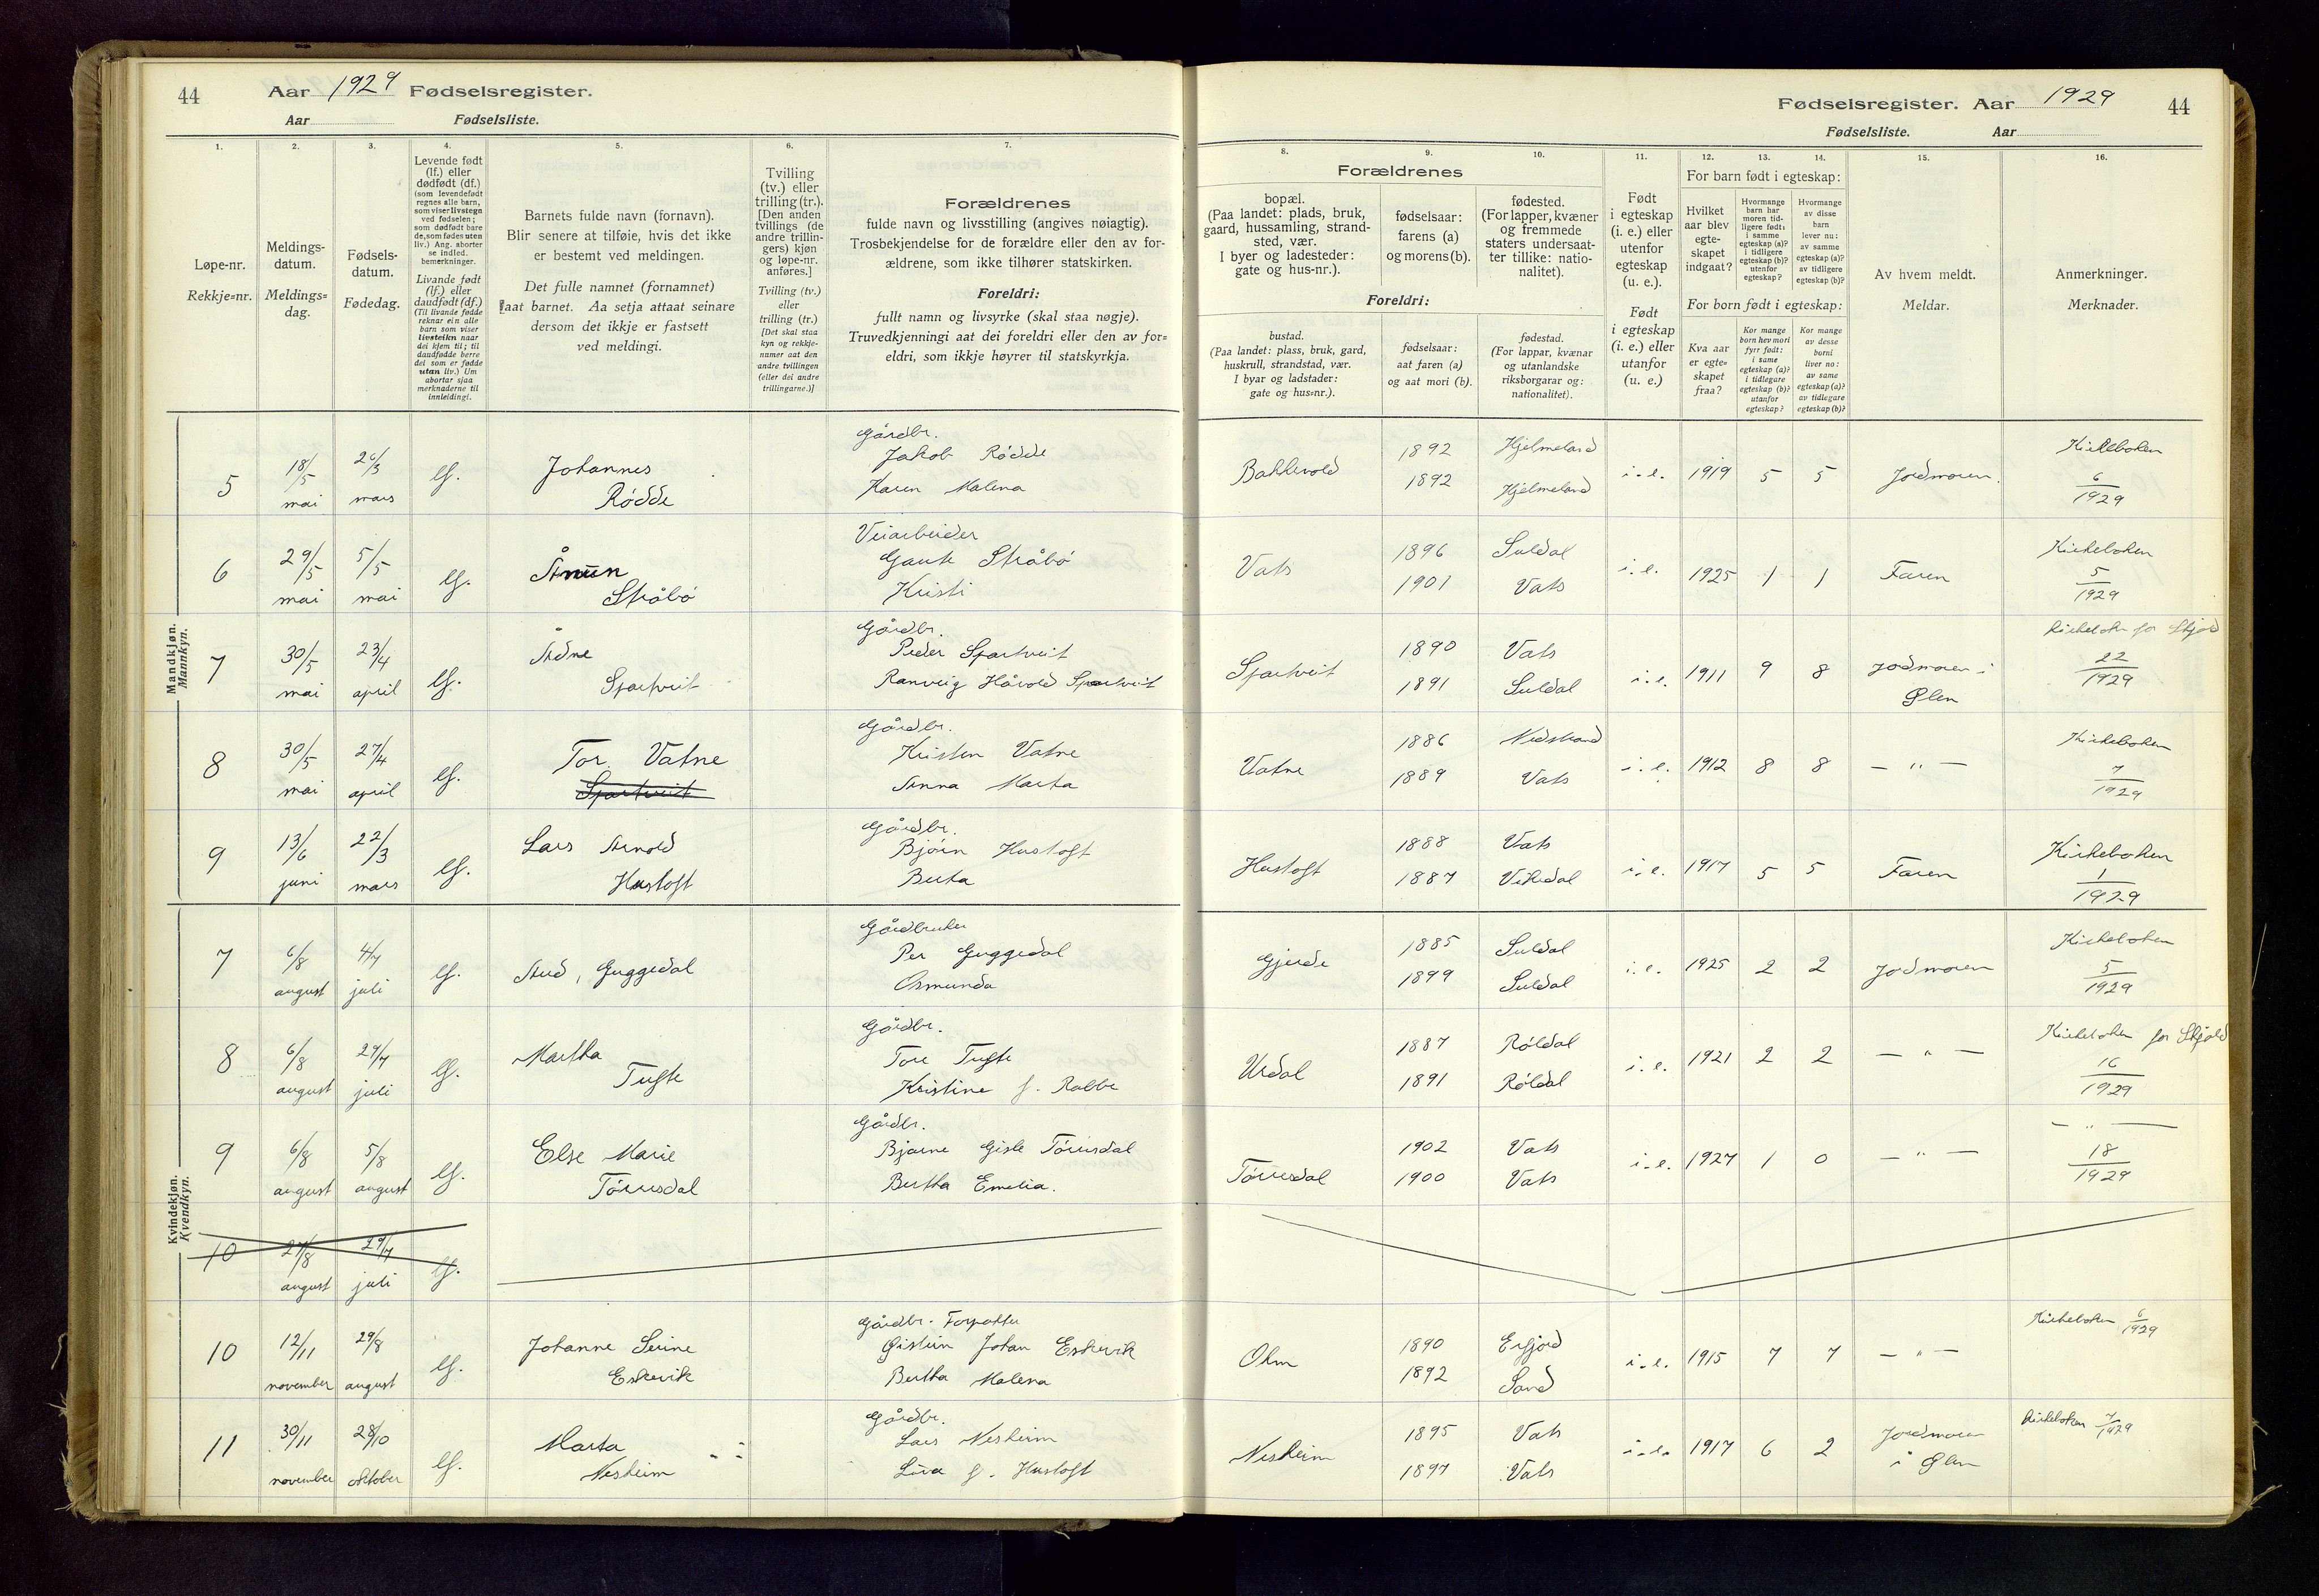 44 Aar 1929 Fødselsregister.
Aar Fødselsliste.
1. 2. 3. 4. 5. 6. 7.
Løpe-nr.
Rekkje=nr.
Meldings-
datum.
Meldings=
dag.
Fødsels-
datum.
Fødedag.
Levende født
(lf.) eller
dødfødt (df.)
(som levendefødt
regnes alle barn,
som viser livstegn
ved fødselen;
som dødfødt bare
de, som fødes uten
liv.) Ang. aborter
se indled.
bemerkninger.
Livande født
(lf.) eller
daudfødt (df.)
(Til livande fødde
reknar ein alle
barn som viser
livsteikn naar
dei kjem til; til
daudfødde berre
dei som er fødde
utan liv.) Um
abortar sjaa
merknaderne til
innleidingi.
Barnets fulde navn (fornavn).
Blir senere at tilføie, hvis det ikke
er bestemt ved meldingen.
Det fulle namnet (fornamnet)
aat barnet. Aa setja attaat seinare
dersom det ikkje er fastsett
ved meldingi.
Tvilling
(tv.) eller
trilling (tr.).
[Den anden
tvillings (de
andre trillin-
gers) kjøn
og løpe-nr.
anføres.]
Tvilling (tv.)
eller
trilling (tr.)
[Det skal staa
kyn og rekkje-
numer aat den
andre tvillingen
(eller dei andre
trillingarne.)]
Forældrenes
fulde navn og livsstilling (angives nøiagtig).
Trosbekjendelse for de forældre eller den av for-
ældrene, som ikke tilhører statskirken.
Foreldri:
fullt namn og livsyrke (skal staa nøgje).
Truvedkjenningi aat dei foreldri eller den av for=
eldri, som ikkje høyrer til statskyrkja.
Mandkjøn.
Mannkyn.
Gårdbr.
5 18/5 26/3 lf. Johannes Jakob Rødde
mai mars Rødde Karen Malena
Veiarbeider
6 29/5 5/5 lf. Gaute Stråbø
mai mai Stråbø Kristi
Gårdbr.
7 30/5 23/4 lf. Ådne Peder Spartveit
mai april Spartveit Ranveig Håvold Spartveit
Gårdbr.
8 30/5 27/4 lf. Tor. Vatne Kristen Vatne
mai april Spartveit Anna Marta
Gårdbr.
9 13/6 22/3 lf. Lars Arnold Bjørn Hustoft
juni mars Hustoft Berta
Kvindekjøn.
Kvendkyn.
Gårdbruker
7 6/8 4/7 lf. Aud, Guggedal Per Guggedal
august juli Osmunda
Gårdbr.
8 6/8 29/7 lf. Martha Tore Tufte
august juli Tufte Kristine f. Rabbe
Gårdbr.
9 6/8 5/8 lf. Else Marie Bjarne Gisle Tørresdal
august august Tørresdal Bertha Emelia.
10 27/8 29/7 lf.
august juli
Gårdbr. Forpakter
10 12/11 29/8 lf. Johanne Serine Øistein Johan Eskevik
november august Eskevik Bertha Malena
Gårdbr.
11 30/11 28/10 lf. Marta Lars Nesheim
november oktober Nesheim f. Hustoft
Fødselsregister. Aar 1929 44
Fødselsliste. Aar
8. 9. 10. 11. 12. 13. 14. 15. 16.
Forældrenes
bopæl.
(Paa landet: plads, bruk,
gaard, hussamling, strand-
sted, vær.
I byer og ladesteder:
gate og hus-nr.).
fødselsaar:
farens (a)
og morens (b).
fødested.
(For lapper, kvæner
og fremmede
staters undersaat-
ter tillike: natio-
nalitet).
Foreldri:
bustad.
(Paa landet: plass, bruk, gard,
huskrull, strandstad, vær.
I byar og ladstader:
gate og hus=nr.).
fødselsaar:
aat faren (a)
og aat mori (b).
fødestad.
(For lappar, kvænar
og utanlandske
riksborgarar og:
nationalitet).
Født
i egteskap
(i. e.) eller
utenfor
egteskap
(u. e.).
Født
i egteskap
(i. e.) eller
utanfor
(u. e.)
For barn født i egteskap:
Hvilket
aar blev
egte-
skapet
indgaat?
Hvormange
barn har
moren tid-
ligere født:
i samme
egteskap (a)?
i tidligere
egteskap (b)?
utenfor
egteskap?
Hvormange
av disse
barn
lever nu:
av samme
egteskap (a)?
av tidligere
egteskap (b)?
For born født i egteskap:
Kva aar
er egte=
skapet
fraa?
Kor mange
born hev mori
fyrr født:
i same
egteskap (a)?
i tidlegare
egteskap (b)?
utanfor
egteskap?
Kor mange
av desse
borni
liver no:
av same
egteskap (a)?
av tidlegare
egteskap (b)?
Av hvem meldt.
Meldar.
Anmerkninger.
Merknader.
Bakkevold 1892 Hjelmeland i.e. 1919 5 5 Jordmoren. Kirkeboken
1892 Hjelmeland 6/1929
Vats 1896 Suldal i.e. 1925 1 1 Faren Kirkeboken
1901 Vats 5/1929
Spartveit 1890 Vats i.e. 1911 9 8 Jordmoren i Kirkeboken for Skjold
1891 Suldal Ølen 22/1929
Vatne 1886 Nedstrand i.e. 1912 8 8 — " — Kirkeboken
1889 Vats 7/1929
Hustoft 1888 Vats i.e. 1917 5 5 Faren Kirkeboken
1887 Vikedal 1/1929
Gjerde 1885 Suldal i.e. 1925 2 2 Jordmoren Kirkeboken
1899 Suldal 5/1929
Urdal 1887 Røldal i.e. 1921 2 2 — " — Kirkeboken for Skjold
1891 Røldal 16/1929
Tørresdal 1902 Vats i.e. 1927 1 0 — " — — " —
1900 Vats 18/1929
Ohm 1890 Erfjord i.e. 1915 7 7 — " — Kirkeboken 6/1929
1892 Sand
Nesheim 1895 Vats i.e. 1917 6 2 Jordmoren Kirkeboken 7/1929
1897 Vats i Ølen